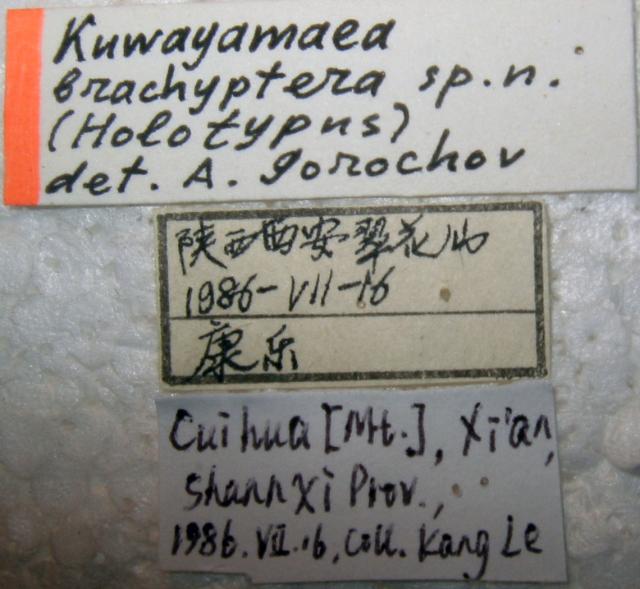 Kuwayamaea
brachyptera sp.n.
(Holotypus)
det. A. Gorochov
陕西西安翠花山
1986-VII-16
康乐
Cuihua [Mt.], Xi'an,
Shannxi Prov.,
1986.VII.16, Coll. Kang Le